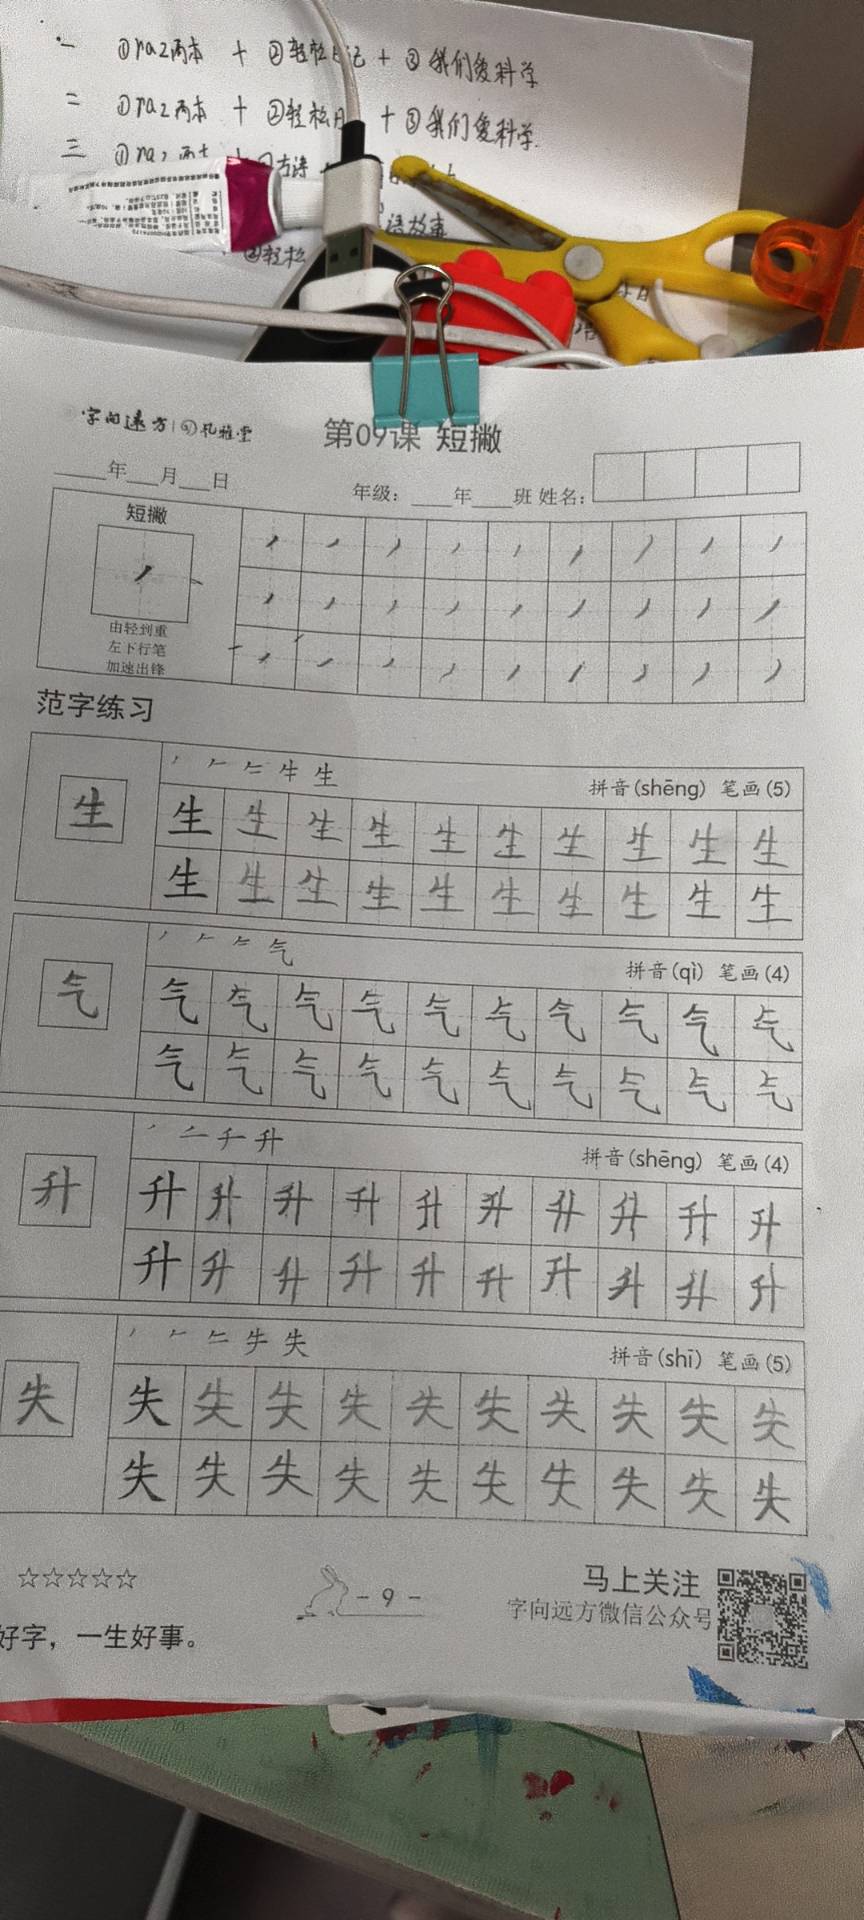 一 ①raz两本 + ②轻松日记 + ③我们爱科学
二 ①raz两本 + ②轻松 + ③我们爱科学.
三 ①raz 两本 +
语故事
②轻松
字向远方
第09课 短撇
年 月 日 年级: 年 班 姓名:
短撇
由轻到重
左下行笔
加速出锋
范字练习
牛 生 拼音(shēng) 笔画(5)
生 生 生 生 生 生 生 生 生 生 生
生 生 生 生 生 生 生 生 生 生
气 拼音(qì) 笔画(4)
气 气 气 气 气 气 气 气 气 气 气
气 气 气 气 气 气 气 气 气 气
升 拼音(shēng) 笔画(4)
升 升 升 升 升 升 升 升 升 升 升
升 升 升 升 升 升 升 升 升 升
失 拼音(shī) 笔画(5)
失 失 失 失 失 失 失 失 失 失 失
失 失 失 失 失 失 失 失 失 失
☆☆☆☆☆
- 9 -
马上关注
字向远方微信公众号
好字，一生好事。